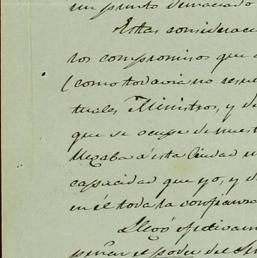 un punto demasiado
Estas consideraci
los compromisos que
(como todavia no
tuales Ministros, y d
que se ocupe de nuest
llegaba á esta Ciudad
capacidad que yo, y d
en él toda la confianza
Llegó efectivam
el poder del